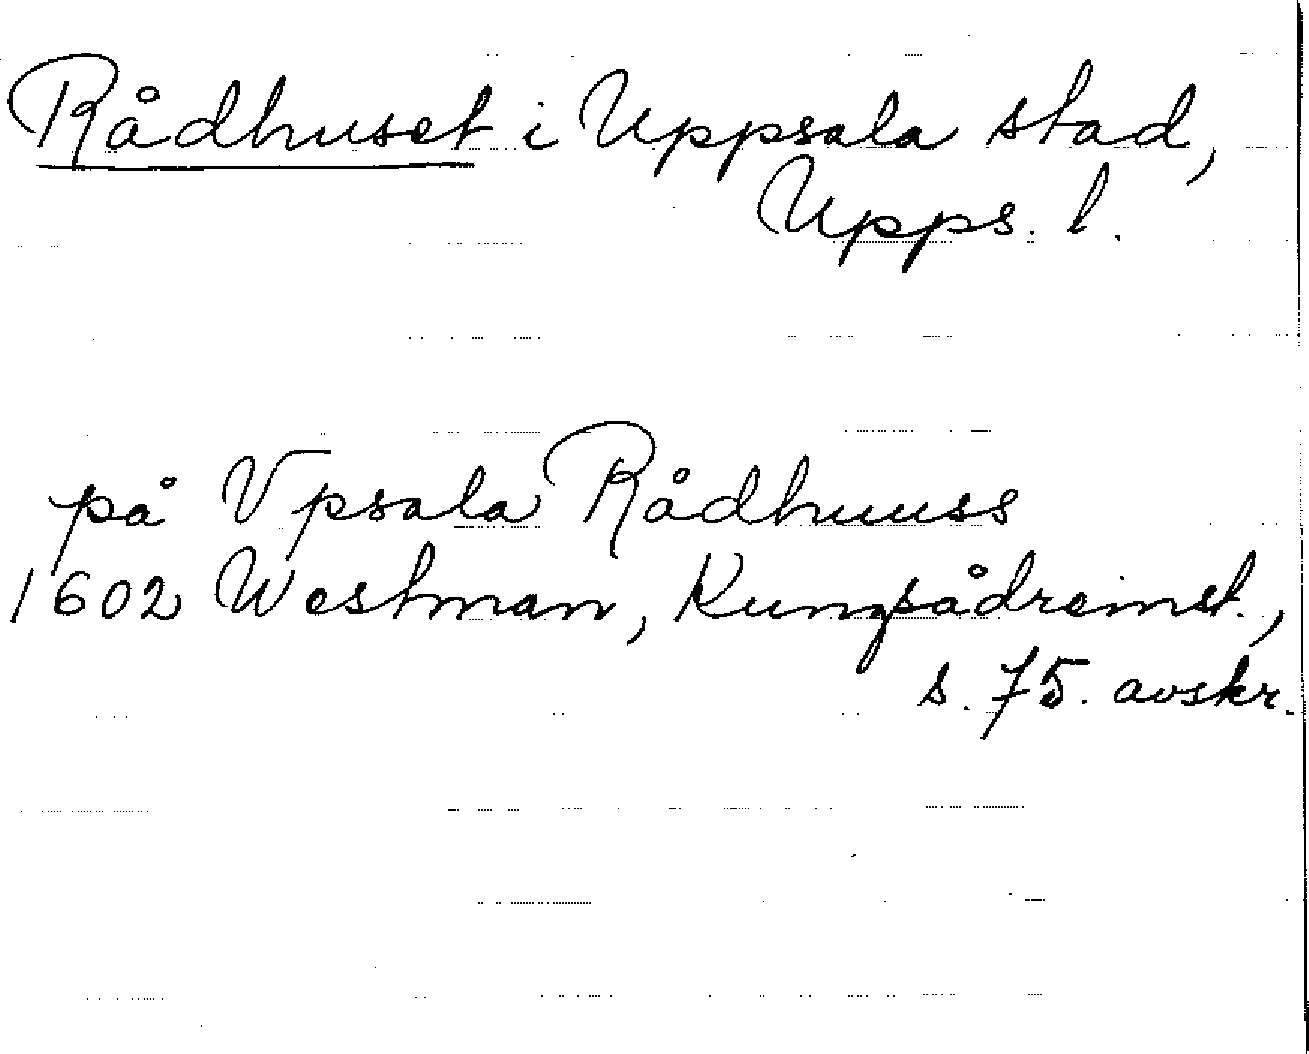 Rådhuset i Uppsala stad,
Upps. l.
på Vpsala Rådhuuss
1602 Westman, Kungsådreinst.,
s. 75. avskr.